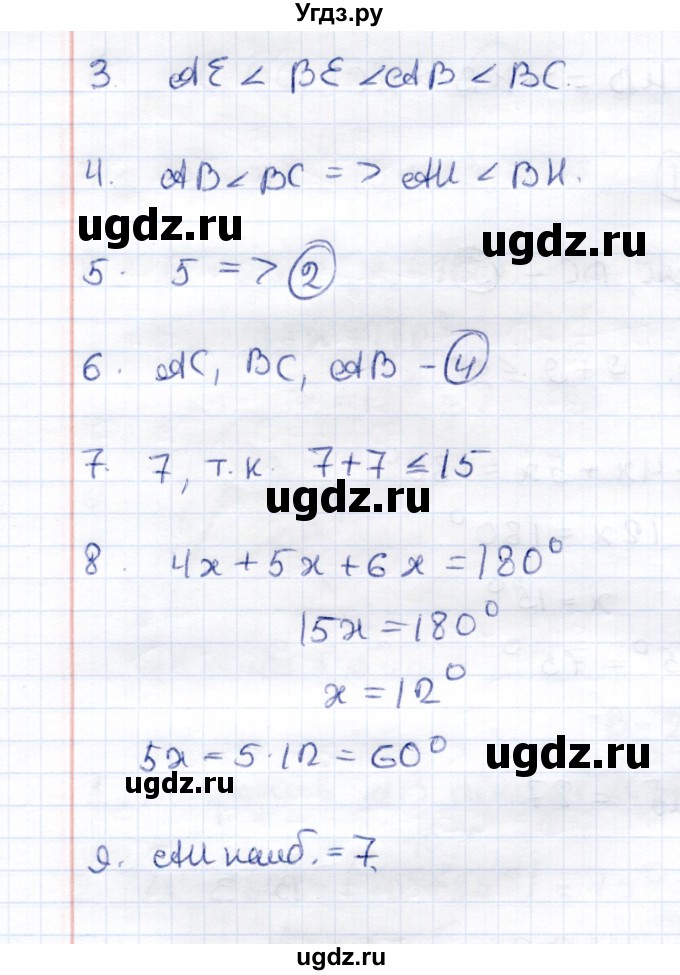 Угдз.ру
3. AE < BE < AB < BC.
4. AB < BC => AH < BH.
ugdz.ru
ugdz.ru
5. 5 => 2
6. AC, BC, AB - 4
7. 7, т.к. 7+7 ≤ 15
ugdz.ru
8. 4x + 5x + 6x = 180°
15x = 180°
x = 12°
5x = 5·12 = 60°
ugdz.ru
ugdz.ru
9. AM наиб. = 7.
ugdz.ru